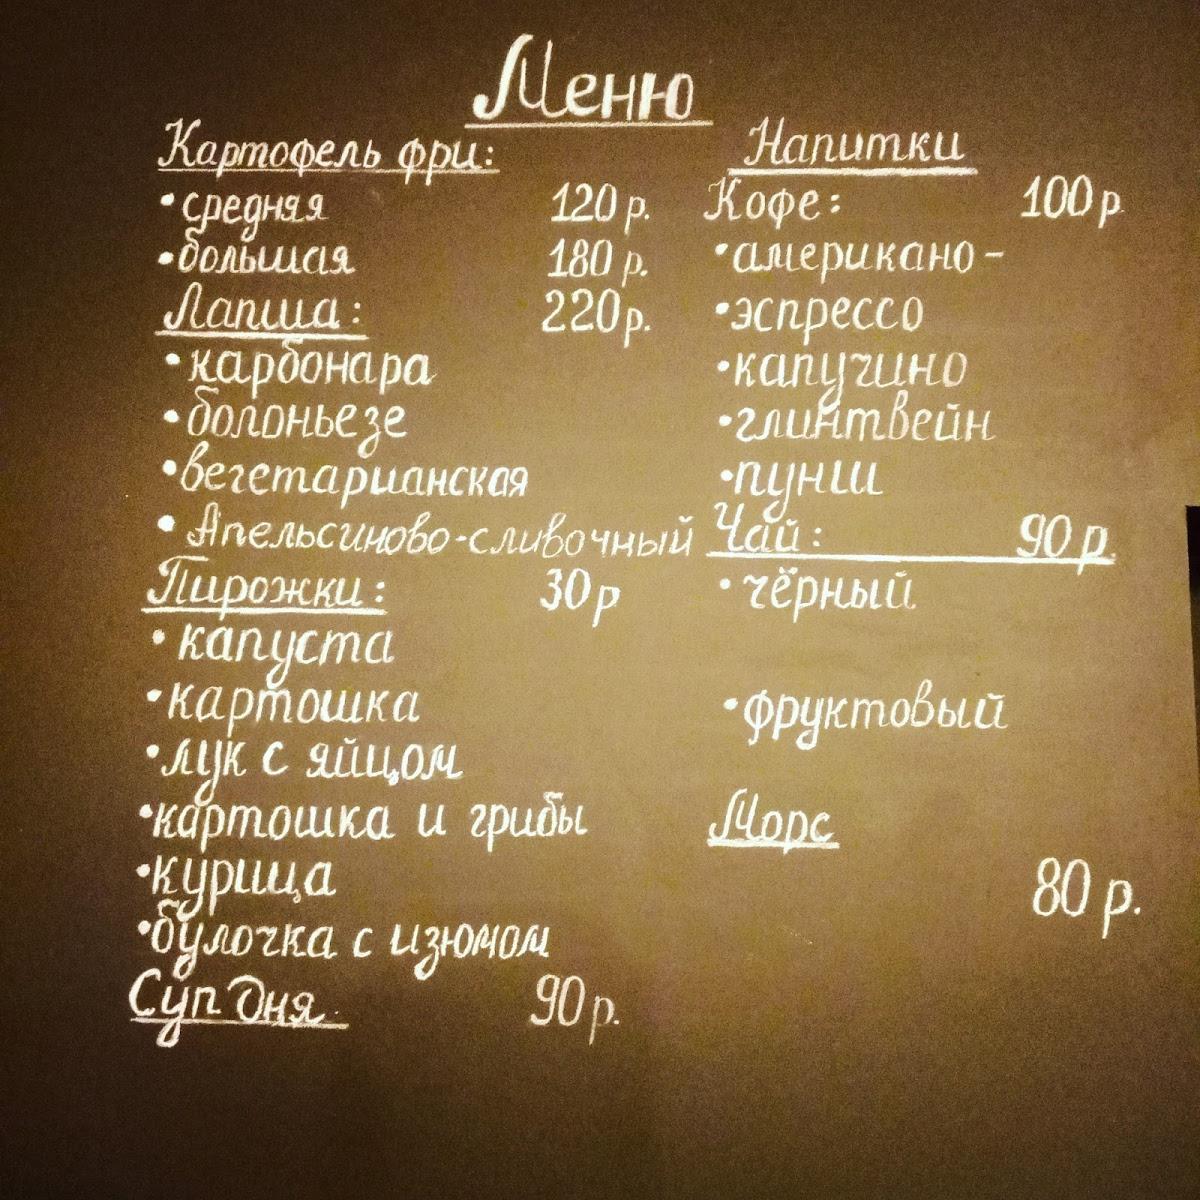 Меню
Картофель фри:
•средняя 120 р.
•большая 180 р.
Лапша: 220р.
•карбонара
•болоньезе
•вегетарианская
•Апельсиново-сливочный
Пирожки: 30р
•капуста
•картошка
•лук с яйцом
•картошка и грибы
•курица
•булочка с изюмом
Суп Дня 90р.
Напитки
Кофе: 100р
•американо-
•эспрессо
•капучино
•глинтвейн
•пунш
Чай: 90р.
•чёрный
•фруктовый
Морс
80 р.